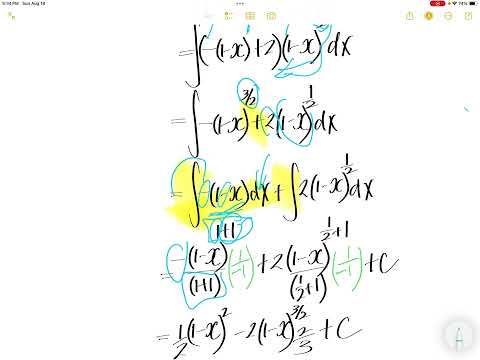 5:14 PM Sun Aug 18 74%
=∫(-(1-x)+2)(1-x)dx
=∫-(1-x)^{3/2}+2(1-x)^{1/2}dx
=∫-(1-x)dx+∫2(1-x)^{1/2}dx
1+1
=-(1-x)/(1+1)(1/-1)+2(1-x)^{1/2+1}/(1/2+1)(1/-1)+C
=1/2(1-x)^2-2(1-x)^{3/2}2/3+C